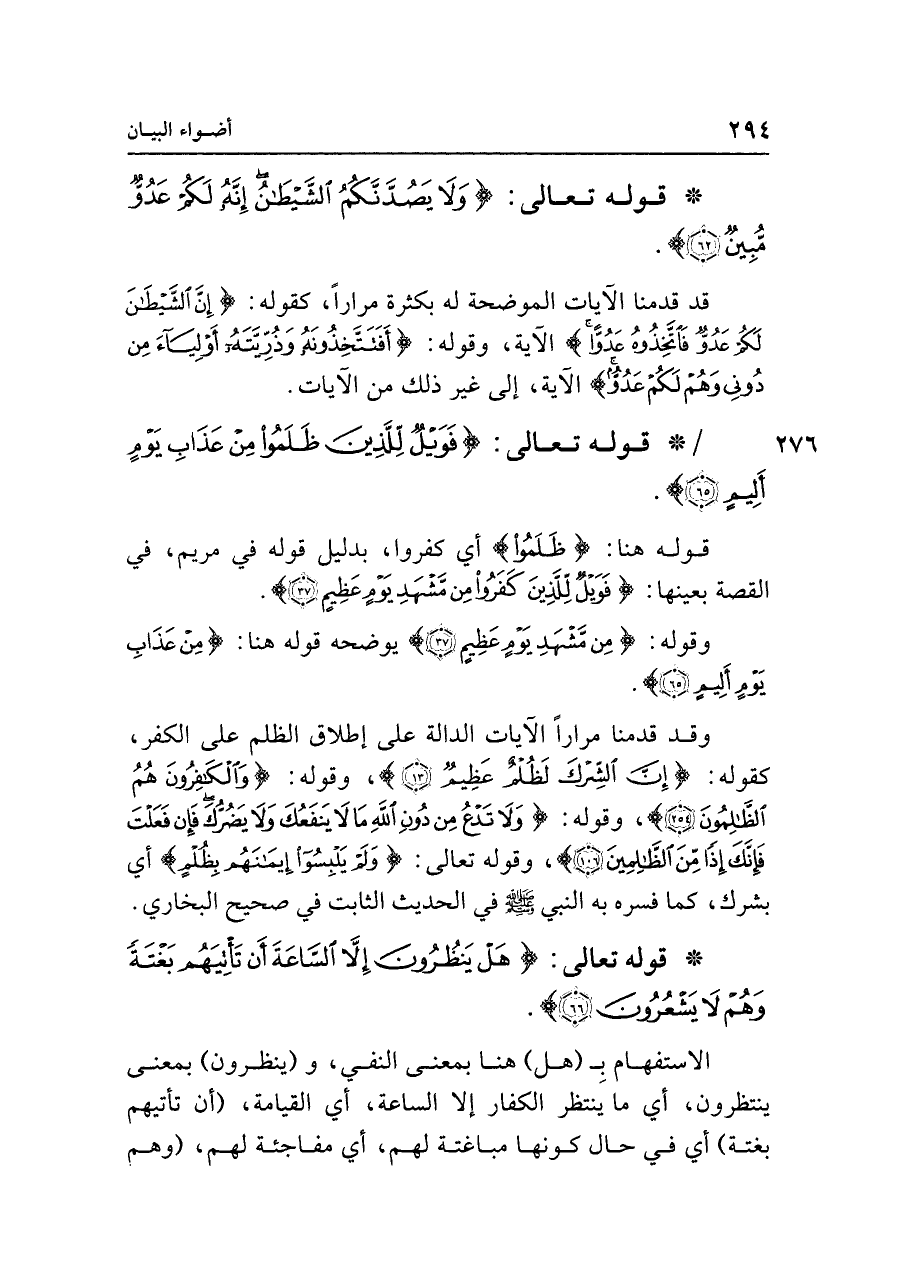 ٢٩٤ أضواء البيان
* قوله تعالى: ﴿وَلَا يَصُدَّنَّكُمُ ٱلشَّيْطَٰنُۖ إِنَّهُۥ لَكُمْ عَدُوٌّ
مُّبِينٌ ﴿٦٢﴾﴾ .
قد قدمنا الآيات الموضحة له بكثرة مراراً، كقوله: ﴿إِنَّ ٱلشَّيْطَٰنَ
لَكُمْ عَدُوٌّ فَٱتَّخِذُوهُ عَدُوًّاۚ﴾ الآية، وقوله: ﴿أَفَتَتَّخِذُونَهُۥ وَذُرِّيَّتَهُۥٓ أَوْلِيَآءَ مِن
دُونِى وَهُمْ لَكُمْ عَدُوٌّۢۚ﴾ الآية، إلى غير ذلك من الآيات.
٢٧٦ / * قوله تعالى: ﴿فَوَيْلٌ لِّلَّذِينَ ظَلَمُوا۟ مِنْ عَذَابِ يَوْمٍ
أَلِيمٍ ﴿٦٥﴾﴾ .
قوله هنا: ﴿ظَلَمُوا۟﴾ أي كفروا، بدليل قوله في مريم، في
القصة بعينها: ﴿فَوَيْلٌ لِّلَّذِينَ كَفَرُوا۟ مِن مَّشْهَدِ يَوْمٍ عَظِيمٍ ﴿٣٧﴾﴾ .
وقوله: ﴿مِن مَّشْهَدِ يَوْمٍ عَظِيمٍ ﴿٣٧﴾﴾ يوضحه قوله هنا: ﴿مِنْ عَذَابِ
يَوْمٍ أَلِيمٍ ﴿٦٥﴾﴾ .
وقد قدمنا مراراً الآيات الدالة على إطلاق الظلم على الكفر،
كقوله: ﴿إِنَّ ٱلشِّرْكَ لَظُلْمٌ عَظِيمٌ ﴿١٣﴾﴾، وقوله: ﴿وَٱلْكَٰفِرُونَ هُمُ
ٱلظَّٰلِمُونَ ﴿٢٥٤﴾﴾، وقوله: ﴿وَلَا تَدْعُ مِن دُونِ ٱللَّهِ مَا لَا يَنفَعُكَ وَلَا يَضُرُّكَۖ فَإِن فَعَلْتَ
فَإِنَّكَ إِذًا مِّنَ ٱلظَّٰلِمِينَ ﴿١٠٦﴾﴾، وقوله تعالى: ﴿وَلَمْ يَلْبِسُوٓا۟ إِيمَٰنَهُم بِظُلْمٍ﴾ أي
بشرك، كما فسره به النبي ﷺ في الحديث الثابت في صحيح البخاري.
* قوله تعالى: ﴿هَلْ يَنظُرُونَ إِلَّا ٱلسَّاعَةَ أَن تَأْتِيَهُم بَغْتَةً
وَهُمْ لَا يَشْعُرُونَ ﴿٦٦﴾﴾ .
الاستفهام بِـ (هل) هنا بمعنى النفي، و (ينظرون) بمعنى
ينتظرون، أي ما ينتظر الكفار إلا الساعة، أي القيامة، (أن تأتيهم
بغتة) أي في حال كونها مباغتة لهم، أي مفاجئة لهم، (وهم